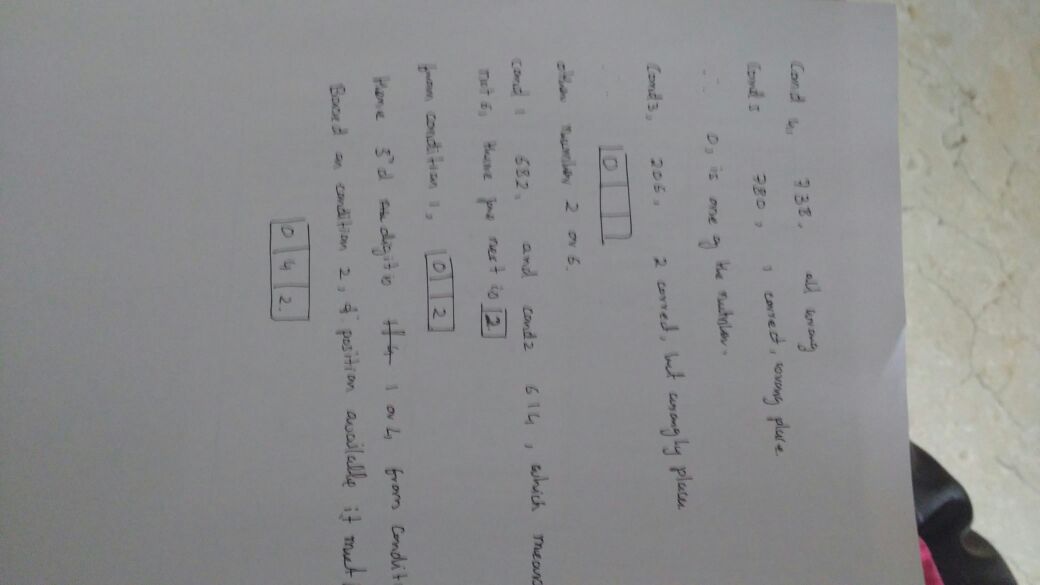 Cond 4, 738, all wrong
Cond 5 780, 1 correct, wrong place
∴ 0, is one of the number.
Cond 3, 206, 2 correct, but wrongly place
0
other number 2 or 6.
cond 1 682, and cond 2 614, which means
not 6, there for next is 2
from condition 1, 0 2
Hence 3rd digit is 1 or 4, from condit
Based on condition 2, position available it must
0 4 2